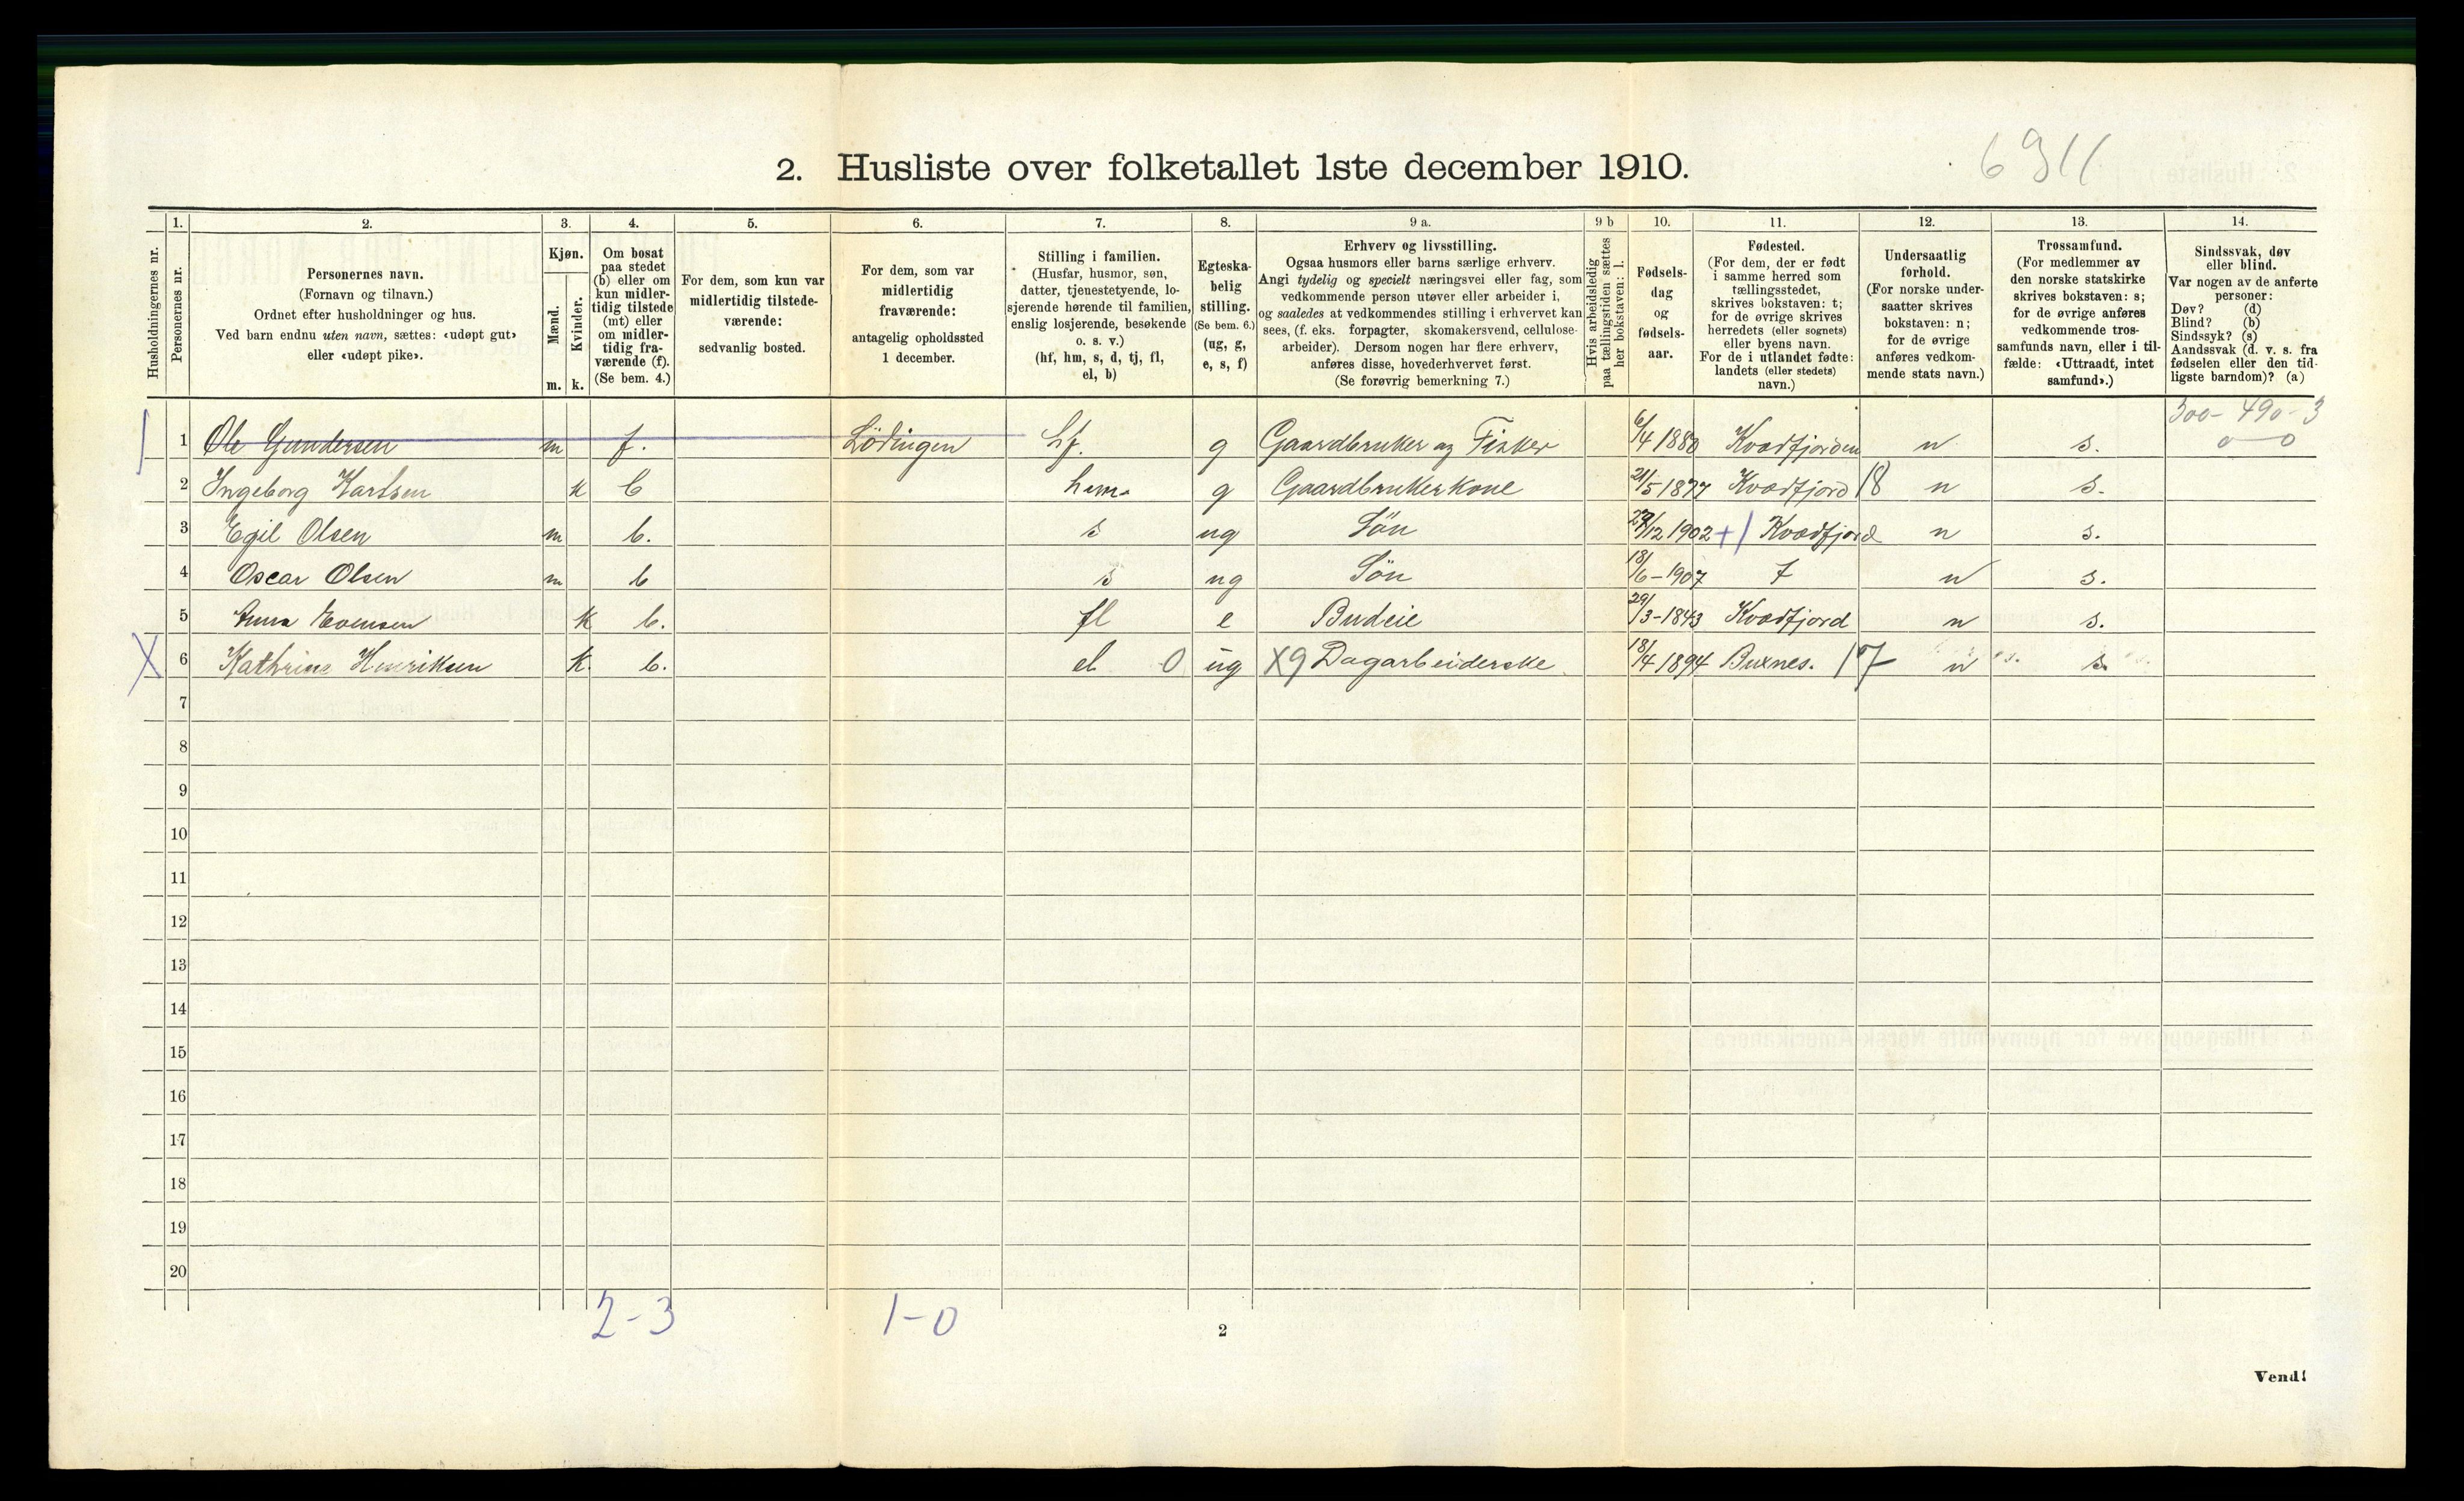 6911
2. Husliste over folketallet 1ste december 1910.
1. 2. 3. 4. 5. 6. 7. 8. 9 a. 9 b 10. 11. 12. 13. 14.
Husholdningernes nr.
Personernes nr.
Personernes navn.
(Fornavn og tilnavn.)
Ordnet efter husholdninger og hus.
Ved barn endnu uten navn, sættes: «udøpt gut»
eller «udøpt pike».
Kjøn.
Mænd.
Kvinder.
m. k.
Om bosat
paa stedet
(b) eller om
kun midler-
tidig tilstede
(mt) eller
om midler-
tidig fra-
værende (f).
(Se bem. 4.)
For dem, som kun var
midlertidig tilstede-
værende:
sedvanlig bosted.
For dem, som var
midlertidig
fraværende:
antagelig opholdssted
1 december.
Stilling i familien.
(Husfar, husmor, søn,
datter, tjenestetyende, lo-
sjerende hørende til familien,
enslig losjerende, besøkende
o. s. v.)
(hf, hm, s, d, tj, fl,
el, b)
Egteska-
belig
stilling.
(Se bem. 6.)
(ug, g,
e, s, f)
Erhverv og livsstilling.
Ogsaa husmors eller barns særlige erhverv.
Angi tydelig og specielt næringsvei eller fag, som
vedkommende person utøver eller arbeider i,
og saaledes at vedkommendes stilling i erhvervet kan
sees, (f. eks. forpagter, skomakersvend, cellulose-
arbeider). Dersom nogen har flere erhverv,
anføres disse, hovederhvervet først.
(Se forøvrig bemerkning 7.)
Hvis arbeidsledig
paa tællingstiden sættes
her bokstaven: l.
Fødsels-
dag
og
fødsels-
aar.
Fødested.
(For dem, der er født
i samme herred som
tællingsstedet,
skrives bokstaven: t;
for de øvrige skrives
herredets (eller sognets)
eller byens navn.
For de i utlandet fødte:
landets (eller stedets)
navn.)
Undersaatlig
forhold.
(For norske under-
saatter skrives
bokstaven: n;
for de øvrige
anføres vedkom-
mende stats navn.)
Trossamfund.
(For medlemmer av
den norske statskirke
skrives bokstaven: s;
for de øvrige anføres
vedkommende tros-
samfunds navn, eller i til-
fælde: «Uttraadt, intet
samfund».)
Sindssvak, døv
eller blind.
Var nogen av de anførte
personer:
Døv? (d)
Blind? (b)
Sindssyk? (s)
Aandssvak (d. v. s. fra
fødselen eller den tid-
ligste barndom)? (a)
300- 490- 3
1 Ole Gundersen m f. Lödingen hf. g Gaardbruker og Fisker 6/4 1880 Kvædfjorden n s. 0-0
2 Ingeborg Karlsen k b hm. g Gaardbrukerkone 21/5-1877 Kvædfjord 18 n s.
3 Egil Olsen m b. s ug Sön 12 1902 +1 Kvædfjord n s.
4 Oscar Olsen m b s ug Sön 18/6-1907 t n s.
5 Anna Evensen k b. fl e Budeie 29/3-1843 Kvædfjord n s.
X 6 Kathrine Henriksen k. b. el 0 ug X9 Dagarbeiderske 18/4 1894 Buxnes. 17 n s.
7
8
9
10
11
12
13
14
15
16
17
18
19
20
2-3 1-0
2
Vend!